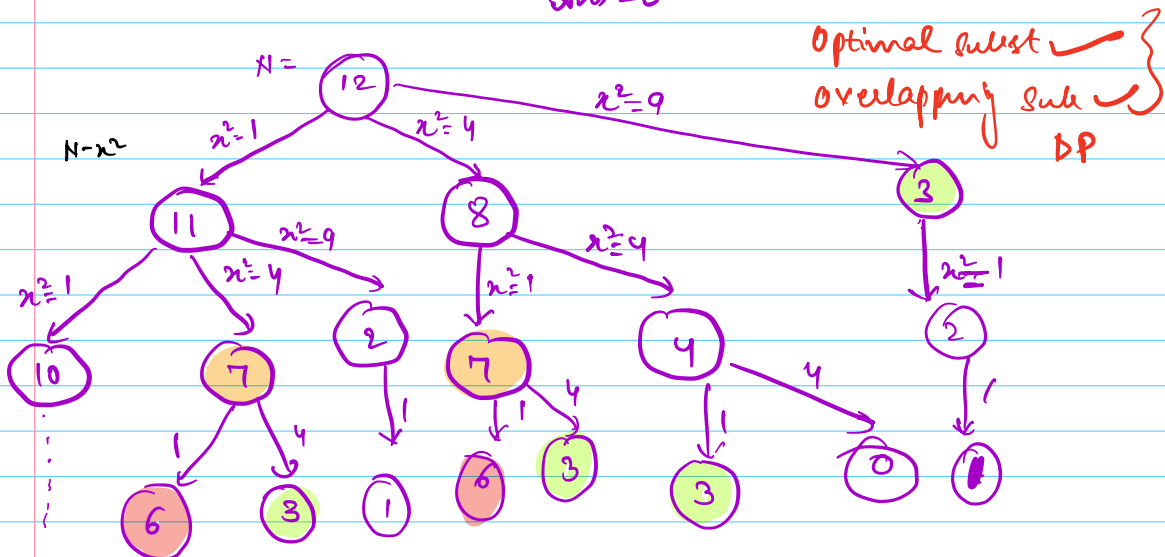 Optimal subst ✓
N = 12
overlapping sub ✓
x²=1
x²=4
x²=9
N-x²
DP
11
8
3
x²=1
x²=4
x²=9
x²=1
x²=4
x²=1
10
7
2
7
4
2
1
4
1
1
4
1
4
1
6
3
1
6
3
3
0